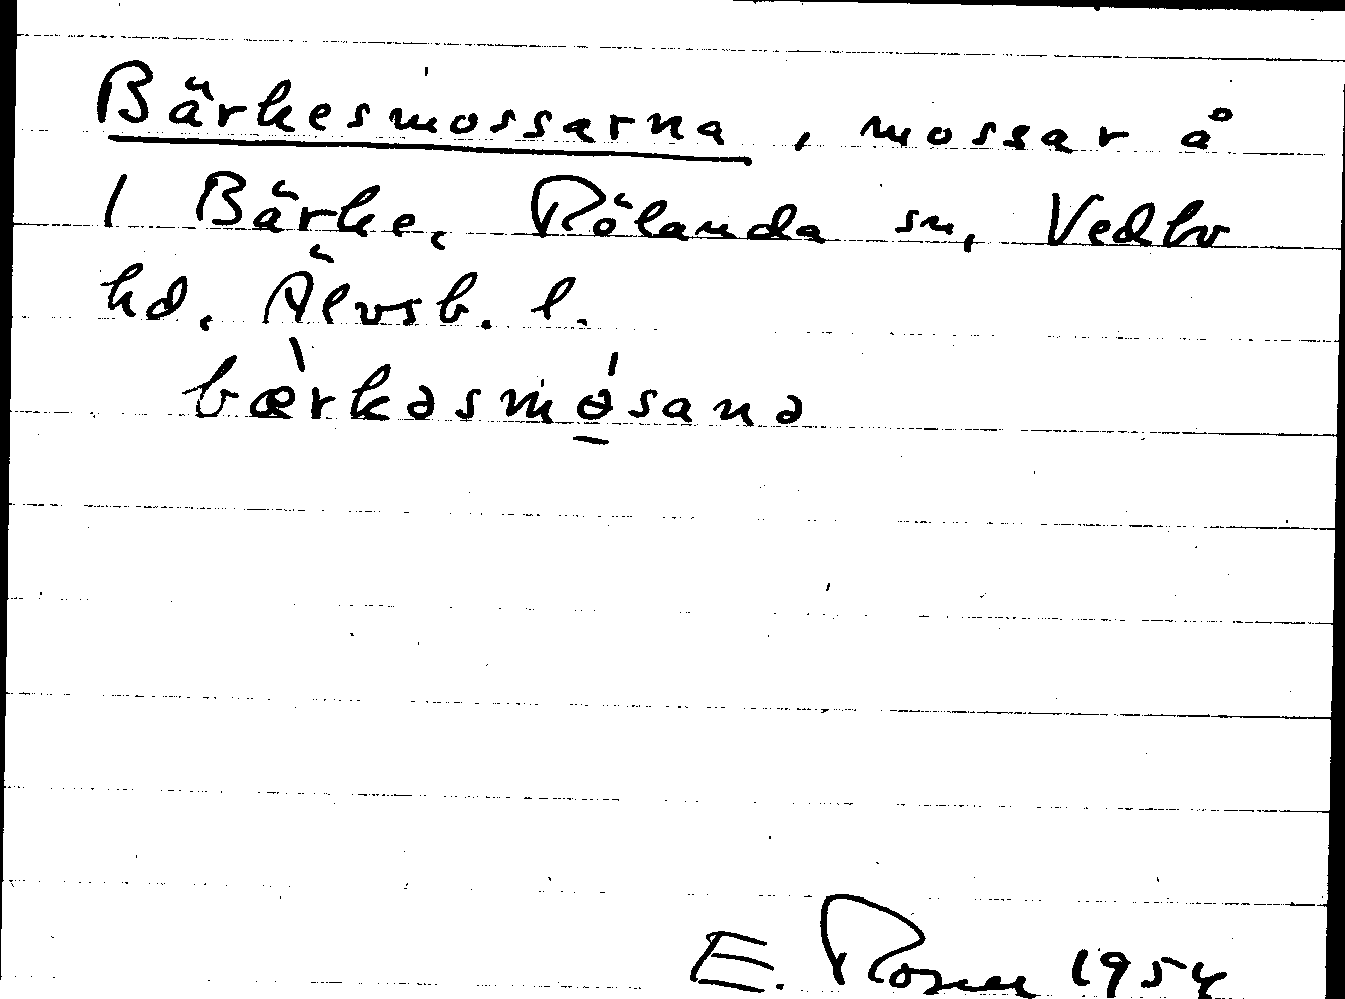 Bärkesmossarna, mossar å
1 Bärke, Rölanda sn, Vedbo
hd, Älvsb. l.
bæ̀rkəsmɵ́sanə
E. Rosell 1954